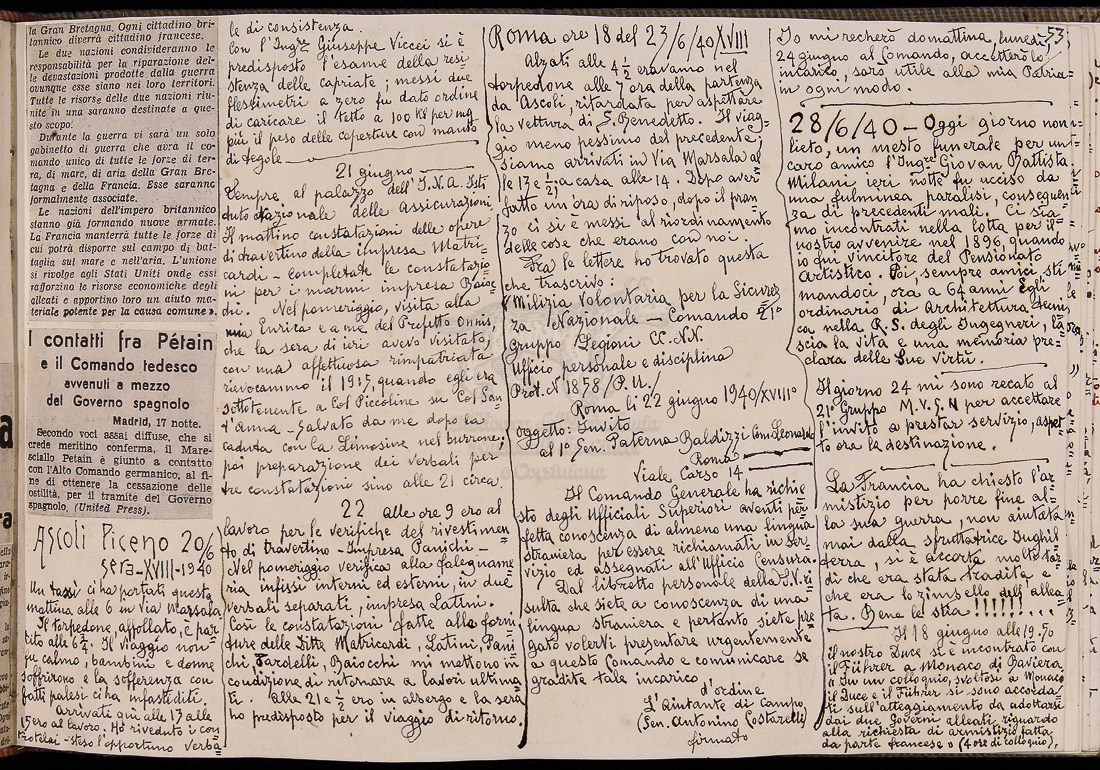 la Gran Bretagna. Ogni cittadino bri-
tannico diverrà cittadino francese.
Le due nazioni condivideranno le
responsabilità per la riparazione del-
le devastazioni prodotte dalla guerra
ovunque esse siano nei loro territori.
Tutte le risorse delle due nazioni riu-
nite in una saranno destinate a que-
sto scopo.
Durante la guerra vi sarà un solo
gabinetto di guerra che avrà il co-
mando unico di tutte le forze di ter-
ra, di mare, di aria della Gran Bre-
tagna e della Francia. Esse saranno
formalmente associate.
Le nazioni dell'impero britannico
stanno già formando nuove armate.
La Francia manterrà tutte le forze di
cui potrà disporre sul campo di bat-
taglia sul mare e nell'aria. L'unione
si rivolge agli Stati Uniti onde essi
rafforzino le risorse economiche degli
alleati e apportino loro un aiuto ma-
teriale potente per la causa comune ».
I contatti fra Pétain
e il Comando tedesco
avvenuti a mezzo
del Governo spagnolo
Madrid, 17 notte.
Secondo voci assai diffuse, che si
crede meritino conferma, il Mare-
sciallo Petain è giunto a contatto
con l'Alto Comando germanico, al fi-
ne di ottenere la cessazione delle
ostilità, per il tramite del Governo
spagnolo. (United Press).
Ascoli Piceno 20/6
sera-XVIII-1940
Un tassì ci ha portati questa
mattina alle 6 in Via Marsala
Il torpedone, affollato, è par=
tito alle 6½. Il viaggio non
fu calmo, bambini e donne
soffrirono e la sofferenza con
fatti palesi ci ha infastiditi.
Arrivati qui alle 13 alle
15 ero al lavoro. Ho riveduto i con
trotelai - steso l'opportuno verba=
le di consistenza
Con l'Ingre Giuseppe Viccei si è
predisposto l'esame della resi=
stenza delle capriate; messi due
flessimetri a zero fu dato ordine
di caricare il tetto a 100 Kg per mq
più il peso delle coperture con manto
di tegole
21 giugno
Sempre al palazzo dell'I.N.A. Isti
tuto Nazionale delle Assicurazioni
Il mattino constatazioni delle opere
di travertino della impresa Matri=
cardi - Completate le constatazio
ni per i marmi impresa Baioc=
chi. Nel pomeriggio, visita alla
mia Enrica e a me del Prefetto Onnis,
che la sera di ieri avevo visitato,
con una affettuosa rimpatriata
rievocammo il 1915, quando egli era
sottotenente a Col Piccoline su Col San=
t'Anna - Salvato da me dopo la
caduta con la Limosine nel burrone,
poi preparazione dei verbali per
tre constatazioni sino alle 21 circa.
22 alle ore 9 ero al
lavoro per le verifiche del rivestimen=
to di travertino - Impresa Panichi -
Nel pomeriggio verifica alla falegname=
ria infissi interni ed esterni, in due
verbali separati, impresa Latini.
Così le constatazioni fatte alla forni=
ture delle Ditte Matricardi, Latini, Pani=
chi, Fardelli, Baiocchi mi mettono in
condizione di ritornare a lavori ultima=
ti. Alle 21 e ½ ero in albergo e la sera
ho predisposto per il viaggio di ritorno.
Roma ore 18 del 23/6/40 XVIII
Alzati alle 4½ eravamo nel
torpedone alle 7 ora della partenza
da Ascoli, ritardata per aspettare
la vettura di S. Benedetto. Il viag=
gio meno pessimo del precedente;
siamo arrivati in Via Marsala al
le 13 e ½, a casa alle 14. Dopo aver
fatto un'ora di riposo, dopo il pran
zo ci si è messi al riordinamento
delle cose che erano con noi.
Fra le lettere ho trovato questa
che trascrivo:
Milizia Volontaria per la Sicurez
za Nazionale - Comando 21°
Gruppo Legioni CC.N.N.
Ufficio personale e disciplina
Prot. N° 1858/P.U./
Roma li 22 giugno 1940/XVIII°
oggetto: Invito
al 1° Sen. Paterna Baldizzi Com Leonardo
Roma
Viale Carso 14
Il Comando Generale ha richie
sto degli Ufficiali Superiori aventi per=
fetta conoscenza di almeno una lingua
straniera per essere richiamati in ser=
vizio ed assegnati all'Ufficio Censura.
Dal libretto personale della S.V. ri
sulta che siete a conoscenza di una
lingua straniera e pertanto siete pre
gato volerVi presentare urgentemente
a questo Comando e comunicare se
gradite tale incarico
d'ordine
L'Aiutante di campo,
(Sen. Antonino Costarelli)
firmato
53,
Io mi recherò domattina, lunedì,
24 giugno al Comando, accetterò lo
incarico, sarò utile alla mia Patria=
in ogni modo.
28/6/40 - Oggi giorno non
lieto, un mesto funerale per un
caro amico l'Ingre Giovan Battista
Milani ieri notte fu ucciso da
una fulminea paralisi, conseguen
za di precedenti mali. Ci sia=
mo incontrati nella lotta per il
nostro avvenire nel 1896, quando
io qui vincitore del Pensionato
Artistico. Poi, sempre amici, sti
mandoci, ora a 64 anni egli
ordinario di Architettura tecni
ca nella R.S. degli Ingegneri, la
scia la vita e una memoria pre=
clara delle Sue virtù.
Il giorno 24 mi sono recato al
21° Gruppo M.V.S.N per accettare
l'invito a prestar servizio, aspet
to ora la destinazione.
La Francia ha chiesto l'ar
mistizio per porre fine al=
la sua guerra, non aiutata
mai dalla sfruttatrice Inghil
terra, si è accorta molto tar
di che era stata tradita e
che era lo zimbello dell'allea
ta. Bene le sta !!!!!!!....
Il 18 giugno alle 19.50
il nostro Duce si è incontrato con
il Führer a Monaco di Baviera
« In un colloquio, svoltosi a Monaco
il Duce e il Führer si sono accorda
ti sull'atteggiamento da adottarsi
dai due Governi alleati riguardo
alla richiesta di armistizio fatta
da parte francese » (4 ore di colloquio).